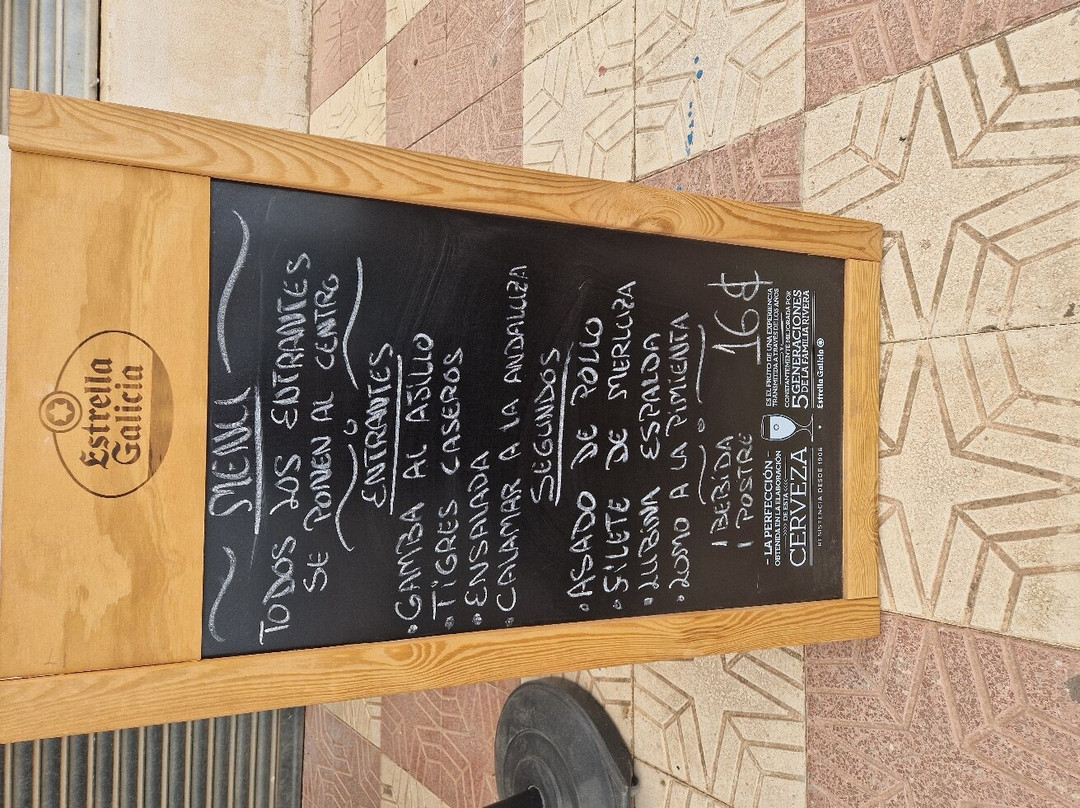 Estrella
Galicia
MENU
TODOS LOS ENTRANTES
SE PONEN AL CENTRO
ENTRANTES
• GAMBA AL AJILLO
• TIGRES CASEROS
• ENSALADA
• CALAMAR A LA ANDALUZA
SEGUNDOS
• ASADO DE POLLO
• FILETE DE MERLUZA
• LUBINA ESPALDA
• LOMO A LA PIMIENTA
1 BEBIDA Ó
1 POSTRE
16€
- LA PERFECCIÓN -
OBTENIDA EN LA ELABORACIÓN
DE ESTA
CERVEZA
RESISTENCIA DESDE 1906
ES EL FRUTO DE UNA EXPERIENCIA
TRANSMITIDA A TRAVÉS DE LOS AÑOS
Y
CONSTANTEMENTE MEJORADA POR
5 GENERACIONES
DE LA FAMILIA RIVERA
Estrella Galicia